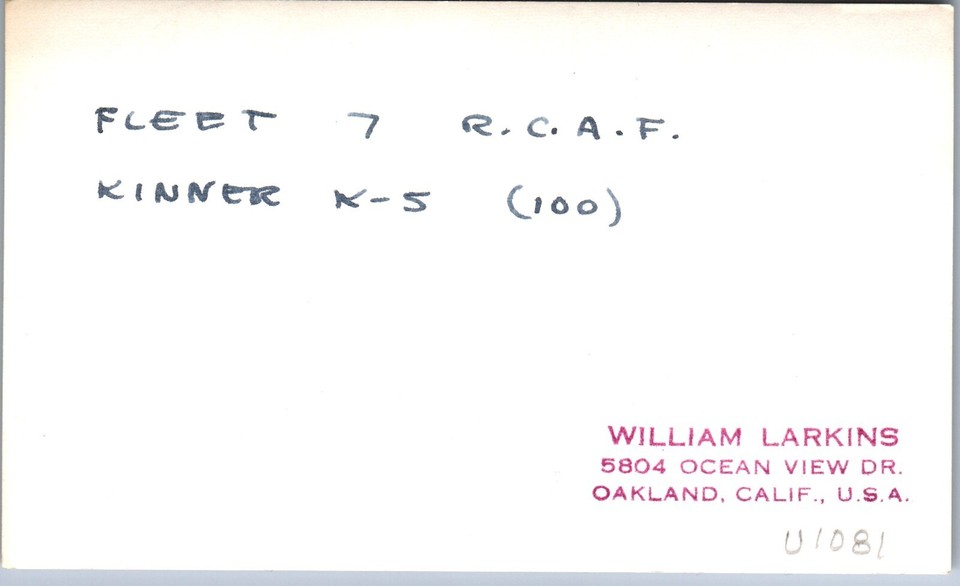 FLEET 7 R.C.A.F.
KINNER K-5 (100)
WILLIAM LARKINS
5804 OCEAN VIEW DR.
OAKLAND, CALIF., U.S.A.
U1081